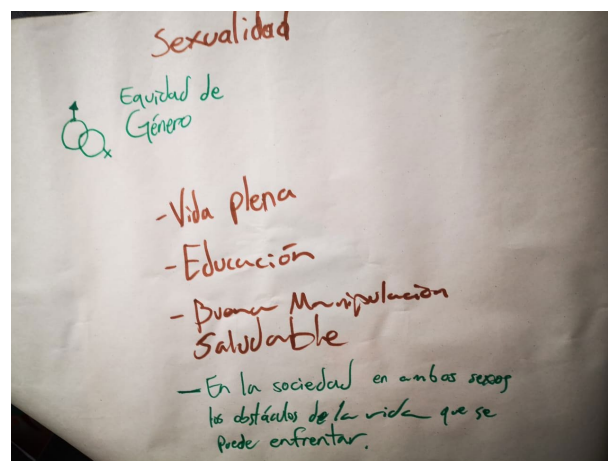 Sexualidad
Equidad de
Género
- Vida plena
- Educación
- Buena Manipulación
Saludable
- En la sociedad en ambos sexos
los obstáculos de la vida que se
puede enfrentar.